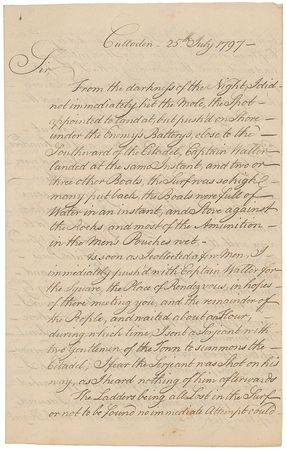 Culloden - 25th July 1797 -
Sir
From the darkness of the Night, I did
not immediately hit the Mole, the Spot
appointed to land at, but push'd on Shore
under the Enemys Battery, close to the
Southward of the Citadel, Captain Waller
landed at the same Instant, and two or
three other Boats, the Surf was so high
many put back, the Boats were full of
Water in an instant, and Stove against
the Rocks, and most of the Amunition
in the Men's Pouches wet.
As soon as I collected a few Men, I
immediately push'd with Captain Waller for
the Square, the Place of Rendezvous, in hopes
of there meeting you, and the remainder of
the People, and waited about an Hour,
during which time I sent a Serjeant with
two Gentlemen of the Town to summons the
Citadel; I fear the Serjeant was Shot on his
way, as I heard nothing of him afterwards
The Ladders being all Lost in the Surf
or not to be found no immediate Attempt could